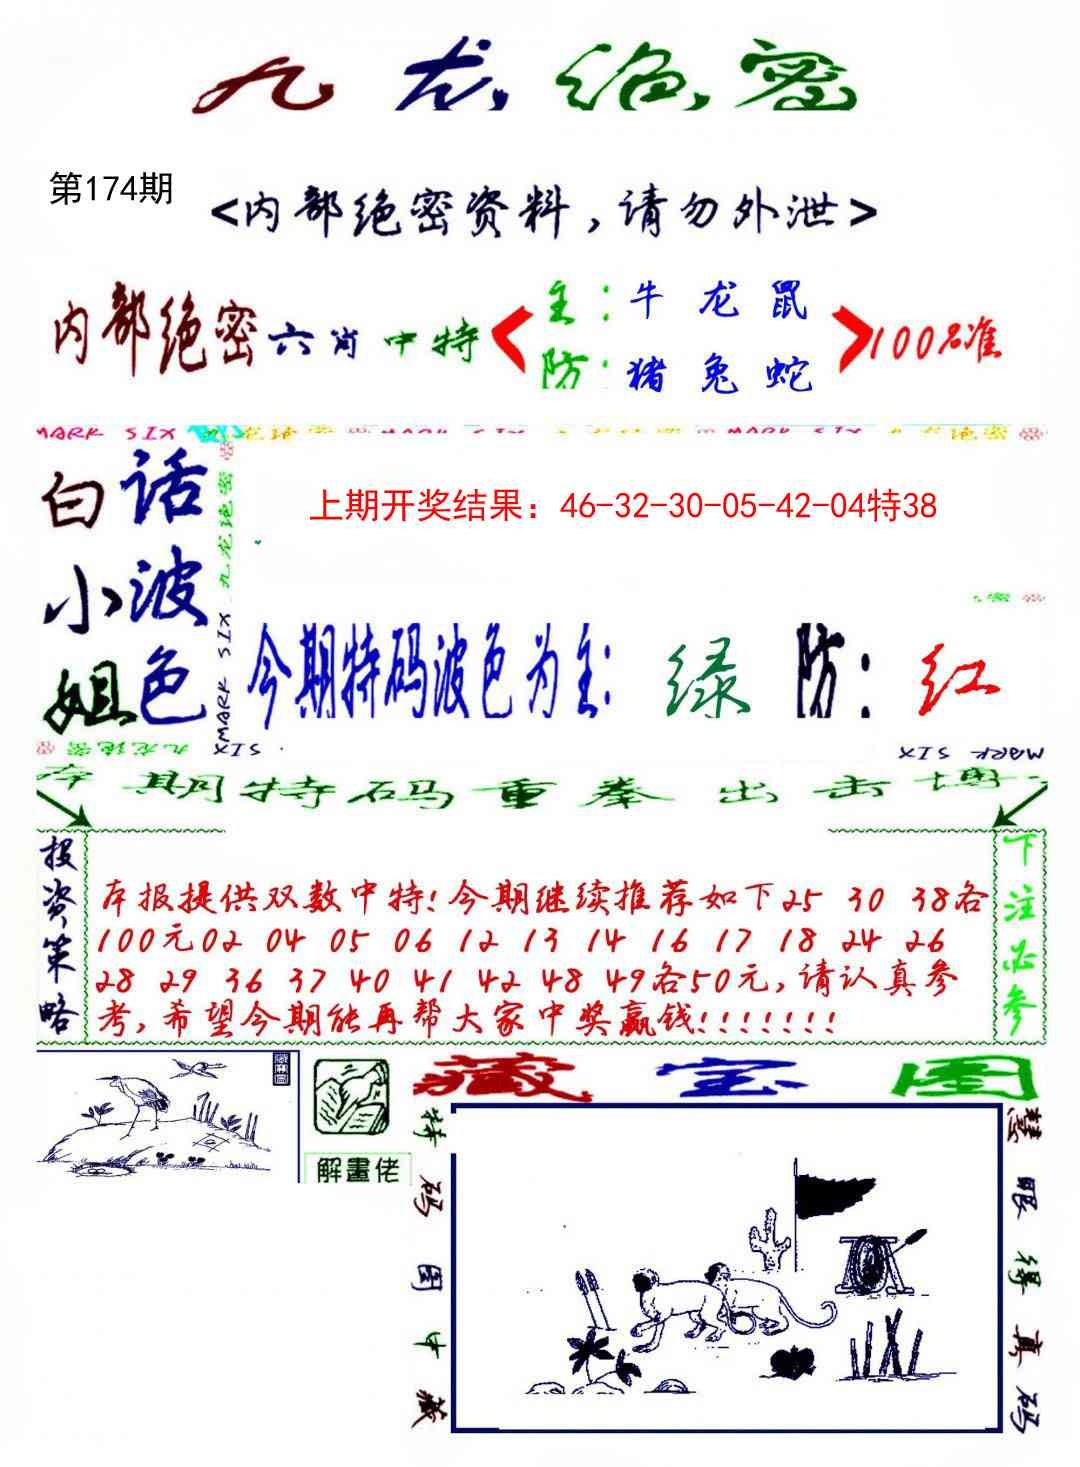 九龙绝密
第174期
<内部绝密资料,请勿外泄>
内部绝密六肖中特
主:牛 龙 鼠
防:猪 兔 蛇
100%准
MARK SIX 九龙绝密 MARK SIX 九龙绝密 MARK SIX 九龙绝密
白话
小波
姐色
九龙绝密
MARK SIX
上期开奖结果：46-32-30-05-42-04特38
今期特码波色为主:绿 防:红
九龙绝密 MARK SIX
MARK SIX
本期特码重拳出击博
投资策略
本报提供双数中特!今期继续推荐如下25 30 38各
100元02 04 05 06 12 13 14 16 17 18 24 26
28 29 36 37 40 41 42 48 49各50元,请认真参
考,希望今期能再帮大家中奖赢钱!!!!!!!
下注必参
解畫佬
藏宝图
特码图中藏
慧眼得真码